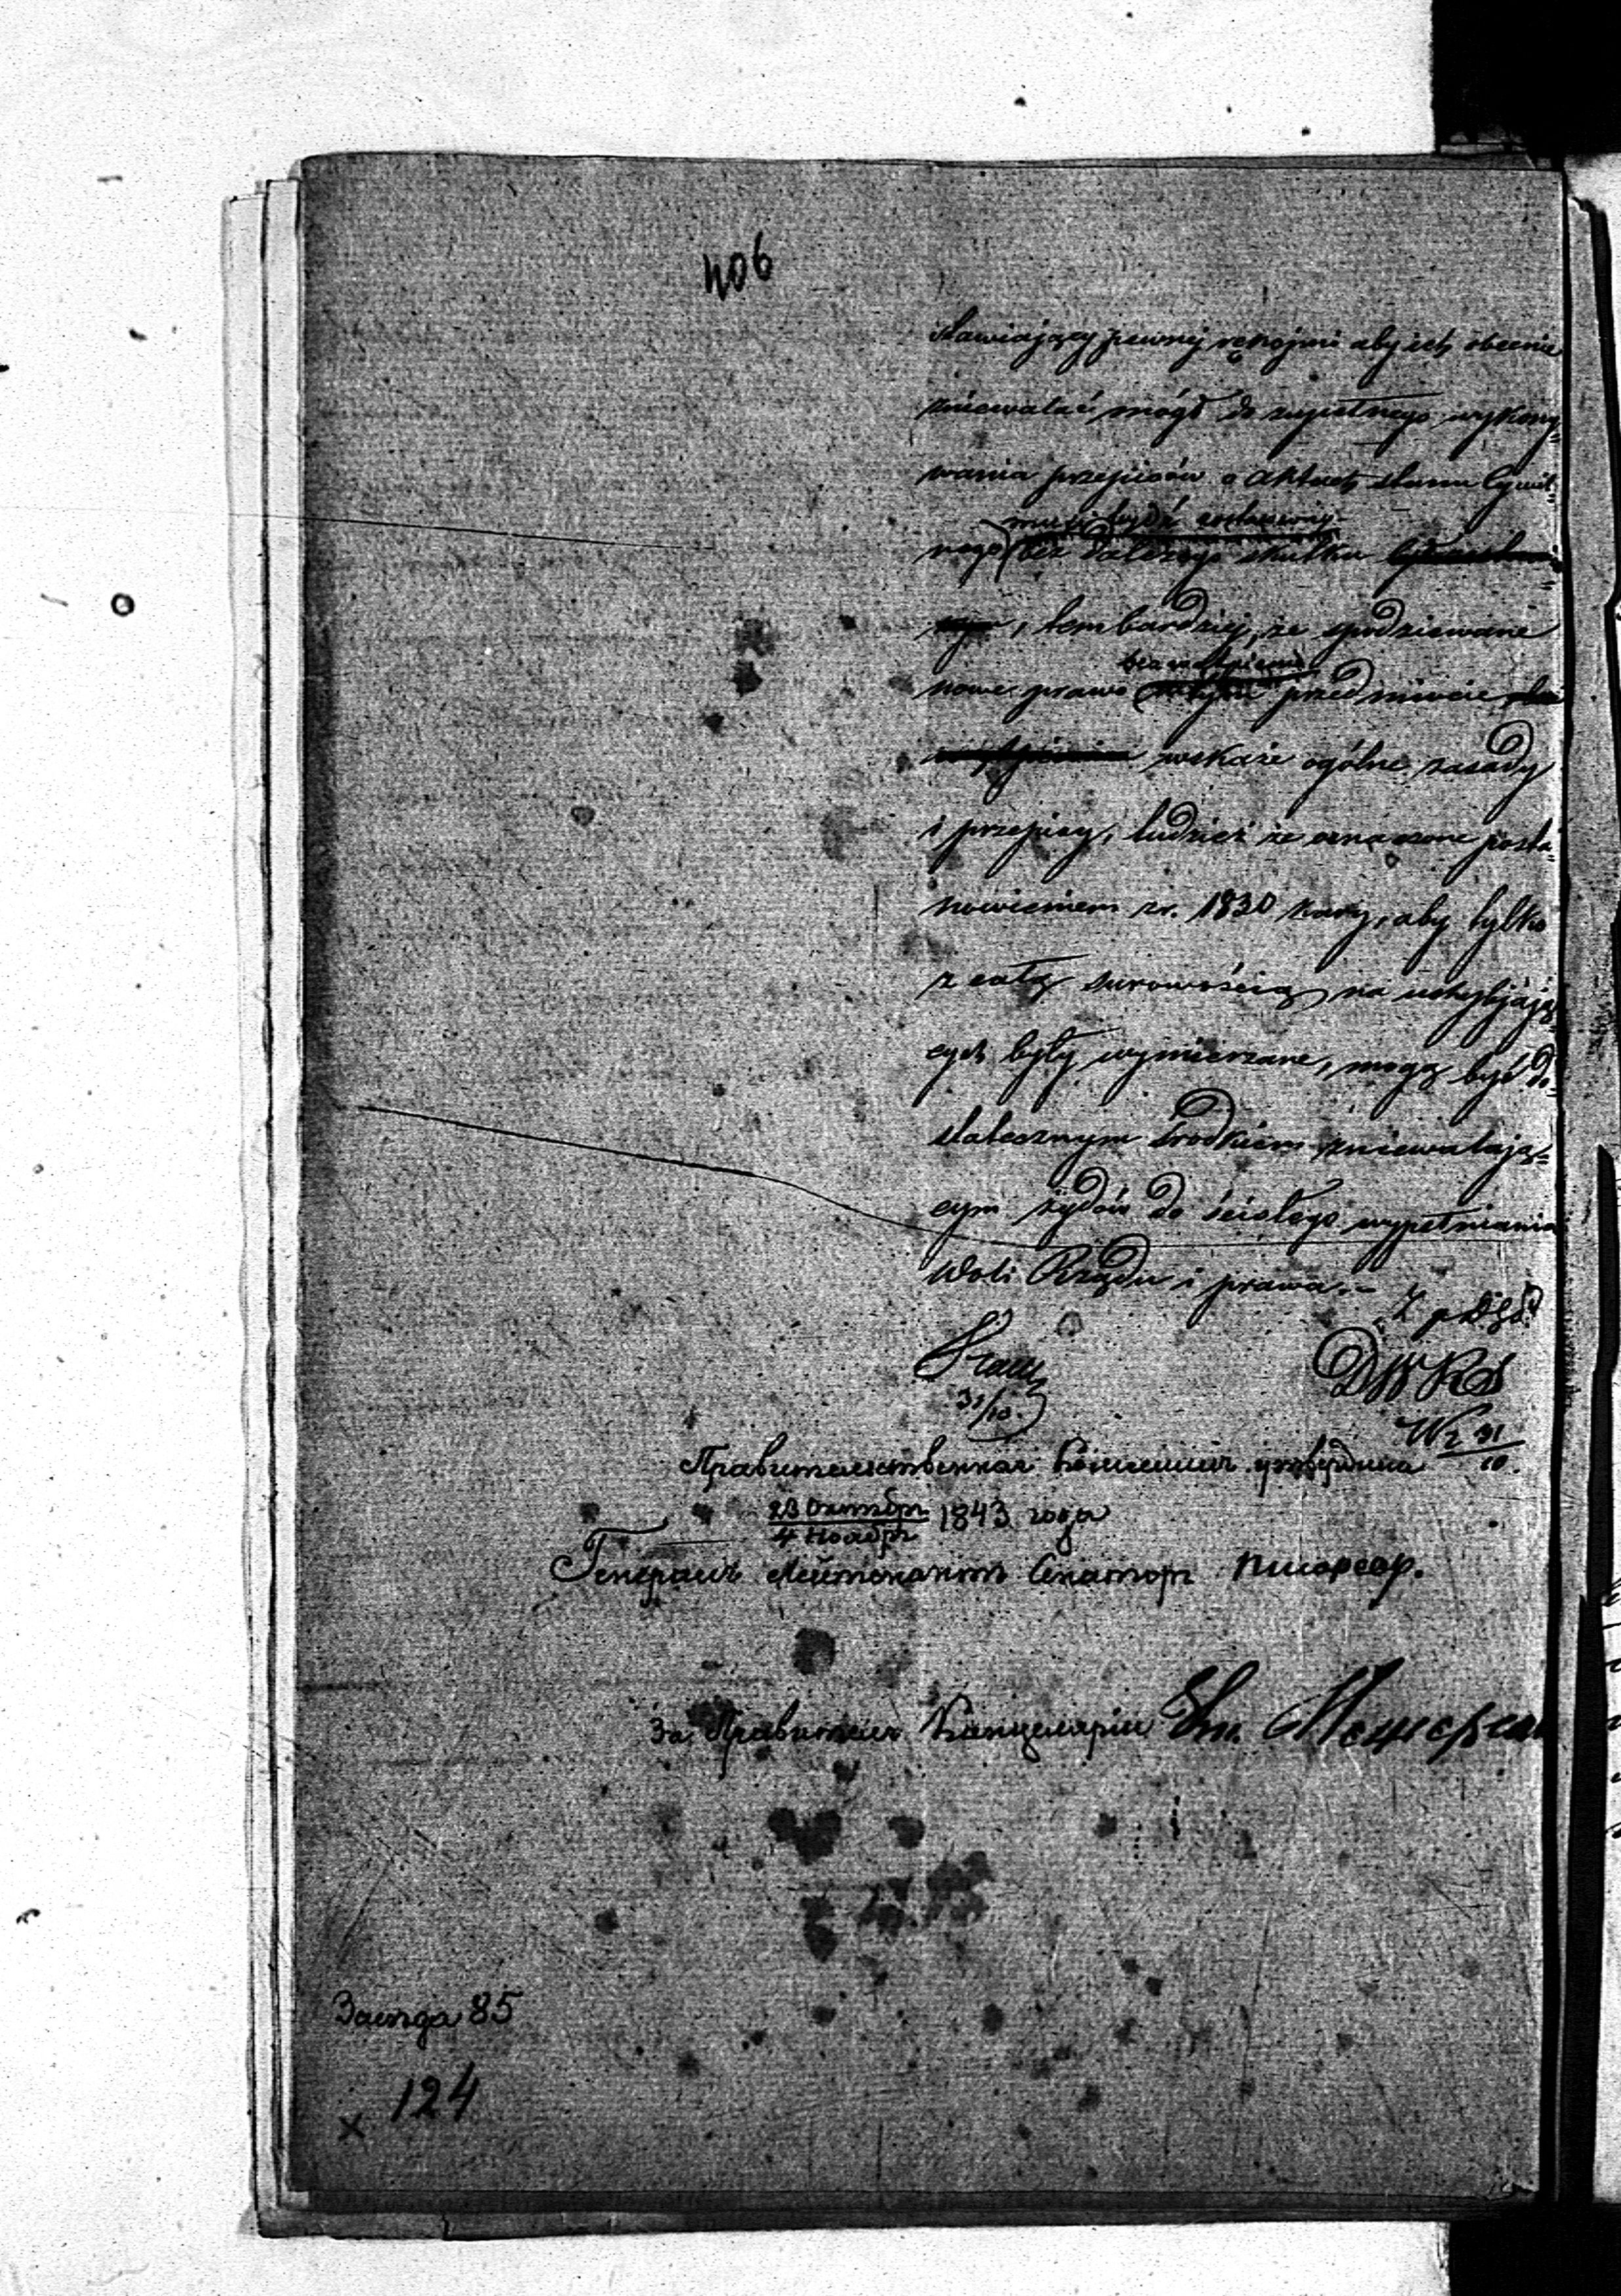 406
stawiający pewnej rękojmi aby ich obecnie
zniewalać mógł do zupełnego wykony=
wania przepisów o Aktach stanu Cywil=
musi bydź zostawiony
nego bez dalszego skutku
, tembardziej, że spodziewane
bezwątpienia
nowe prawo w tym przedmiocie
wskaże ogólne zasady
i przepisy, tudzież że oznaczone posta=
nowieniem z r. 1830 kary, aby tylko
z całą surowością na uchybiają=
cych były wymierzane, mogą być do=
statecznym środkiem zniewalają=
cym żydów do ścisłego wypełniania
Woli Rządu i prawa.–
31/10
31/10
Правительственная Коммиссия утвердила
23 Октября
4 Ноября 1843 года
Генералъ Лейтенантъ Сенаторъ Писарев.
За Правителя Канцеляріи
85
124
x